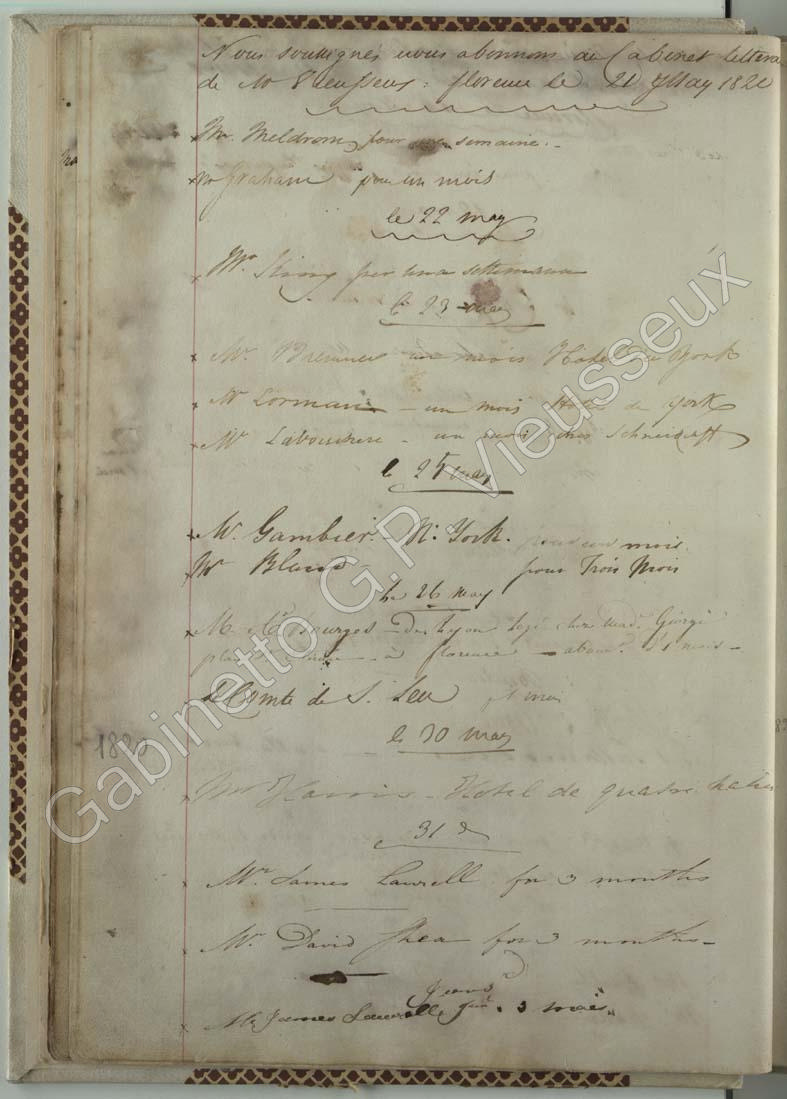 Nous soussignés nous abonnons au Cabinet littera
de Mr Vieusseux. florence le 21 May 1820
Mr. Meldrom pour une semaine.
Mr Graham pour un mois
le 22 may
Mr. King per una settimana
le 23 may
Mr. Bremner un mois Hotel de York
Mr Lorman - un mois Hotel de York
Mr Labouchere - un mois chez Schneiderff
le 25 may
Mr. Gambier. - H: York. pour un mois.
Mr - pour Trois Mois
Le 26 may
M. Bourges - de Lyon logé chez Mad. Giorgi
à florence - abonné
Le Comte de St. Leu
le 30 may
Mr Harris - Hotel de quatre
31 do
Mr. James Lawrell for 3 months
Mr. David Shea for 3 months -
Mr James Lawrell 3 mois
1820
Gabinetto G.P. Vieusseux